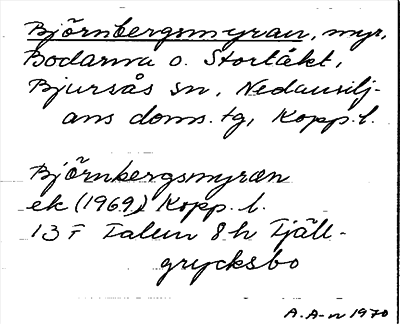 Björnbergsmyran, myr,
Bodarna o. Stortäkt,
Bjursås sn, Nedansilj-
ans doms.tg, Kopp.l.
Björnbergsmyran
ek (1969) Kopp.l.
13 F Falun 8 h Fjäll-
grycksbo
A.A-n 1970